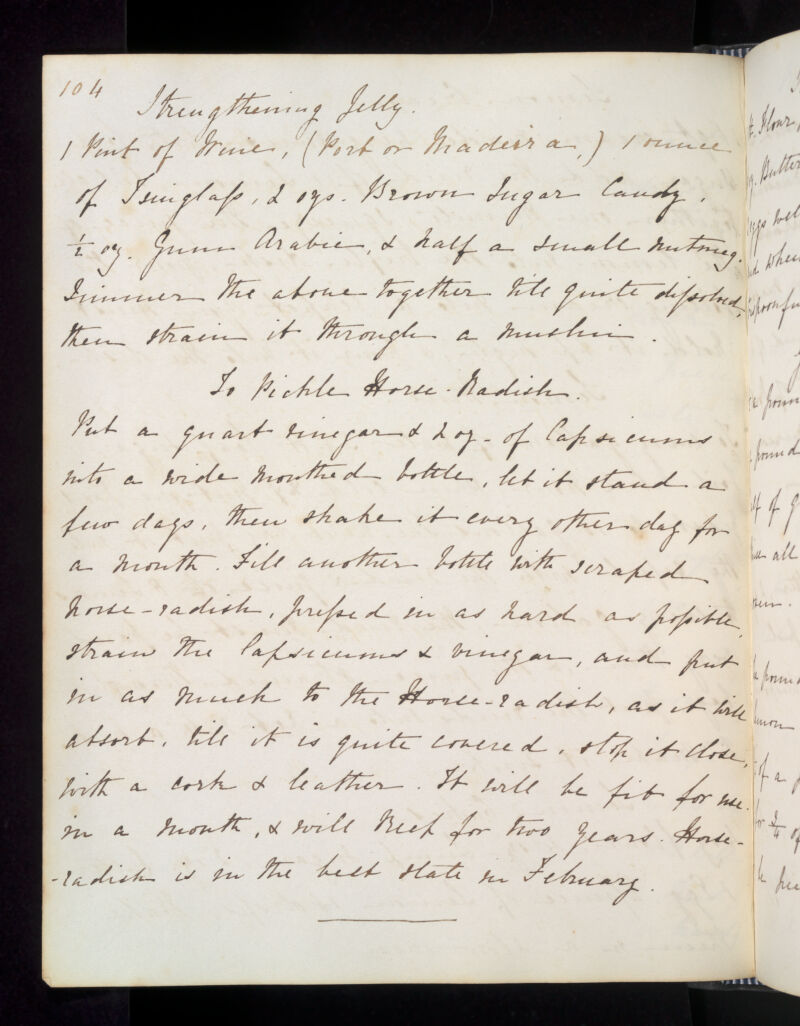 104
Strengthening Jelly.
1 Pint of Wine, (Port or Madeira,) 1 ounce
of Isinglass, 2 ozs. Brown Sugar Candy,
½ oz. Gum Arabic, & half a small nutmeg.
Simmer the above together till quite dissolved,
then strain it through a muslin.
To Pickle Horse-Radish.
Put a quart vinegar & 2 oz. of Capsicums
into a wide mouthed bottle, let it stand a
few days, then shake it every other day for
a month. Fill another bottle with scraped
horse-radish, pressed in as hard as possible,
strain the Capsicums & vinegar, and put
in as much to the Horse-radish, as it will
absorb, till it is quite covered, stop it close,
with a cork & leather. It will be fit for use
in a month, & will keep for two years. Horse-
-radish is in the best state in February.
Flour
Butter
when
spoonfu
pound
of
all
pound
of a
for ¾ of